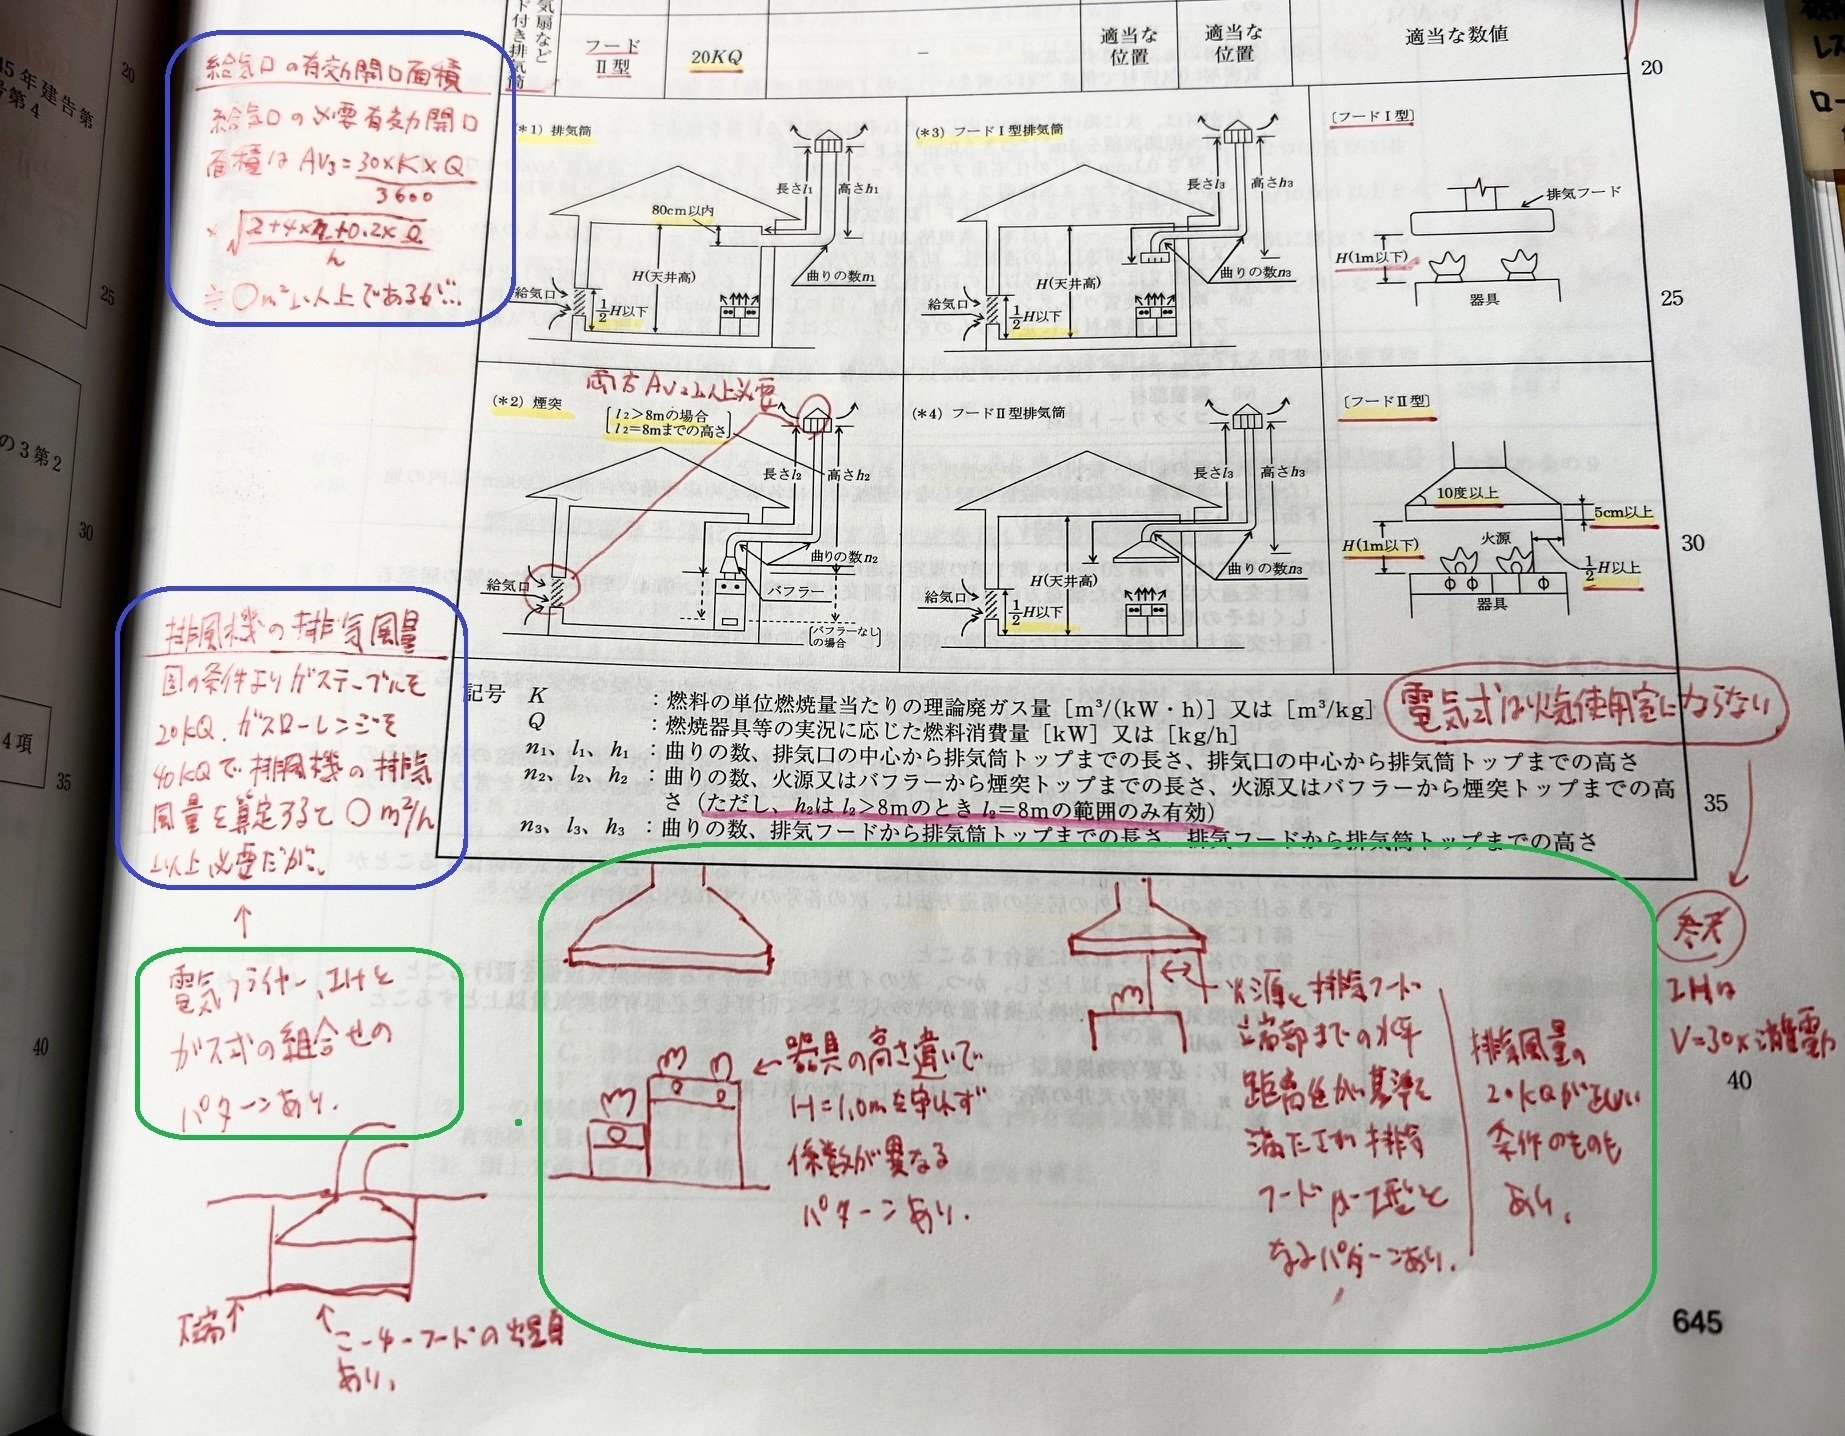 45年建告第
号第4
の3第2
4項
20
25
30
35
40
気扇など
ド付き排気筒
フード
Ⅱ型
20KQ
－
適当な
位置
適当な
位置
適当な数値
20
25
30
35
40
給気口の有効開口面積
給気口の必要有効開口
面積は AV₃=30×K×Q
3600
×√2+4×n+0.2×ℓ
h
≒〇m²以上であるが…
(＊1) 排気筒
長さl₁
高さh₁
80cm以内
H(天井高)
曲りの数n₁
給気口
1/2H以下
(＊3) フードⅠ型排気筒
長さl₃
高さh₃
H(天井高)
曲りの数n₃
給気口
1/2H以下
〔フードⅠ型〕
排気フード
H(1m以下)
器具
両方AV₂以上必要
(＊2) 煙突
l₂>8mの場合
l₂=8mまでの高さ
長さl₂
高さh₂
曲りの数n₂
給気口
バフラー
バフラーなし
の場合
(＊4) フードⅡ型排気筒
長さl₃
高さh₃
H(天井高)
曲りの数n₃
給気口
1/2H以下
〔フードⅡ型〕
10度以上
5cm以上
H(1m以下)
火源
1/2H以上
器具
記号 K ：燃料の単位燃焼量当たりの理論廃ガス量［m³/(kW・h)］又は［m³/kg］
Q ：燃焼器具等の実況に応じた燃料消費量［kW］又は［kg/h］
n₁、l₁、h₁：曲りの数、排気口の中心から排気筒トップまでの長さ、排気口の中心から排気筒トップまでの高さ
n₂、l₂、h₂：曲りの数、火源又はバフラーから煙突トップまでの長さ、火源又はバフラーから煙突トップまでの高
さ（ただし、h₂はl₂>8mのときl₂=8mの範囲のみ有効）
n₃、l₃、h₃：曲りの数、排気フードから排気筒トップまでの長さ、排気フードから排気筒トップまでの高さ
電気式は火気使用室にならない
参考
IHは
V=30×消費電力
排風機の排気風量
図の条件よりガステーブルを
20KQ、ガスローレンジを
40KQで排風機の排気
風量を算定すると〇m³/h
以上必要だが、
電気フライヤー、IHと
ガス式の組合せの
パターンあり.
下端
こーゆーフードの出題
あり、
器具の高さ違いで
H=1.0mを守れず
係数が異なる
パターンあり.
火源と排気フード
端部までの水平
距離が基準を
満たさず排気
フードがⅠ型と
なるパターンあり.
排気風量の
20KQが正しい
条件のものも
あり、
645